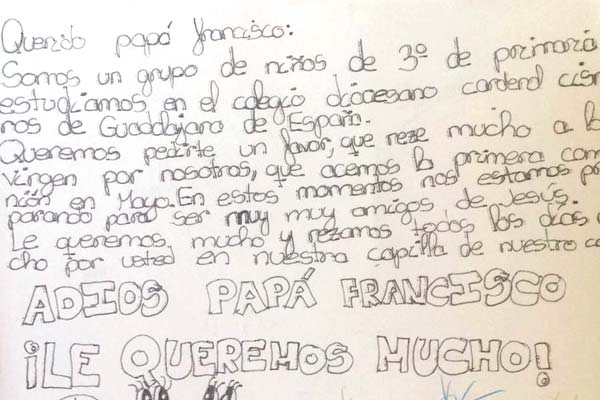 Querido papá francisco:
Somos un grupo de niños de 3º de primaria
estudiamos en el colegio diocesano cardenal cisn
ros de Guadalajara de España.
Queremos pedirte un favor, que reze mucho a la
virgen por nosotros, que acemos la primera com
nión en Mayo. En estos momentos nos estamos pre
parando para ser muy muy amigos de Jesús.
Le queremos mucho y rezamos todos los días
cho por usted en nuestra capilla de nuestro co
ADIOS PAPÁ FRANCISCO
¡LE QUEREMOS MUCHO!